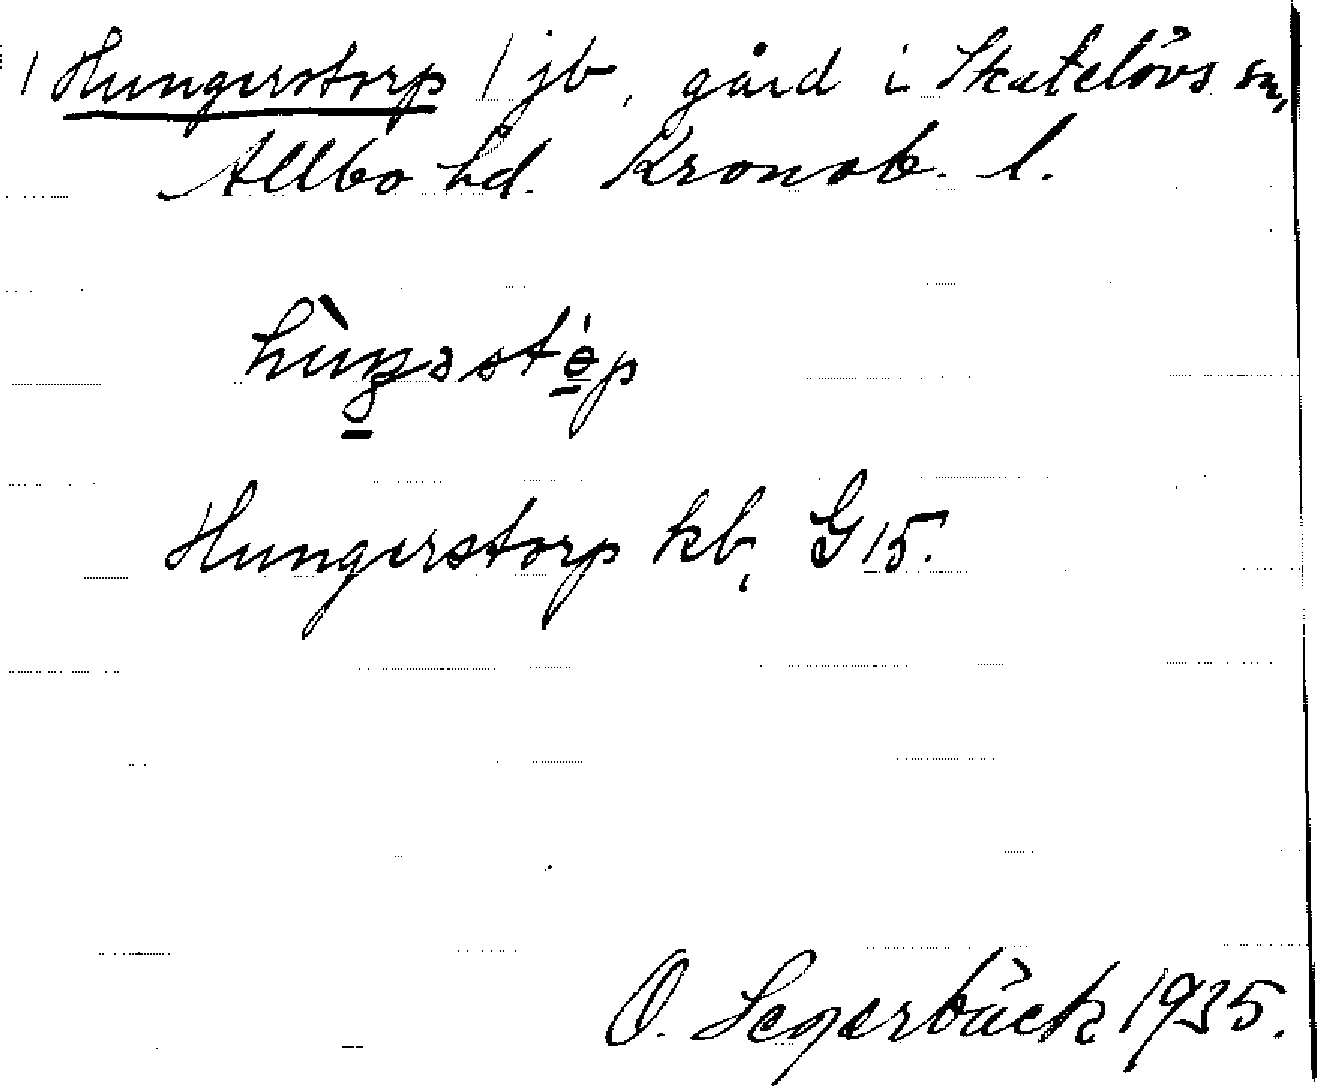 / Hungerstorp / jb, gård i Skatelövs sn,
Allbo hd. Kronob. l.
Hungerstorp kb, G 15.
O. Segerbäck 1935.